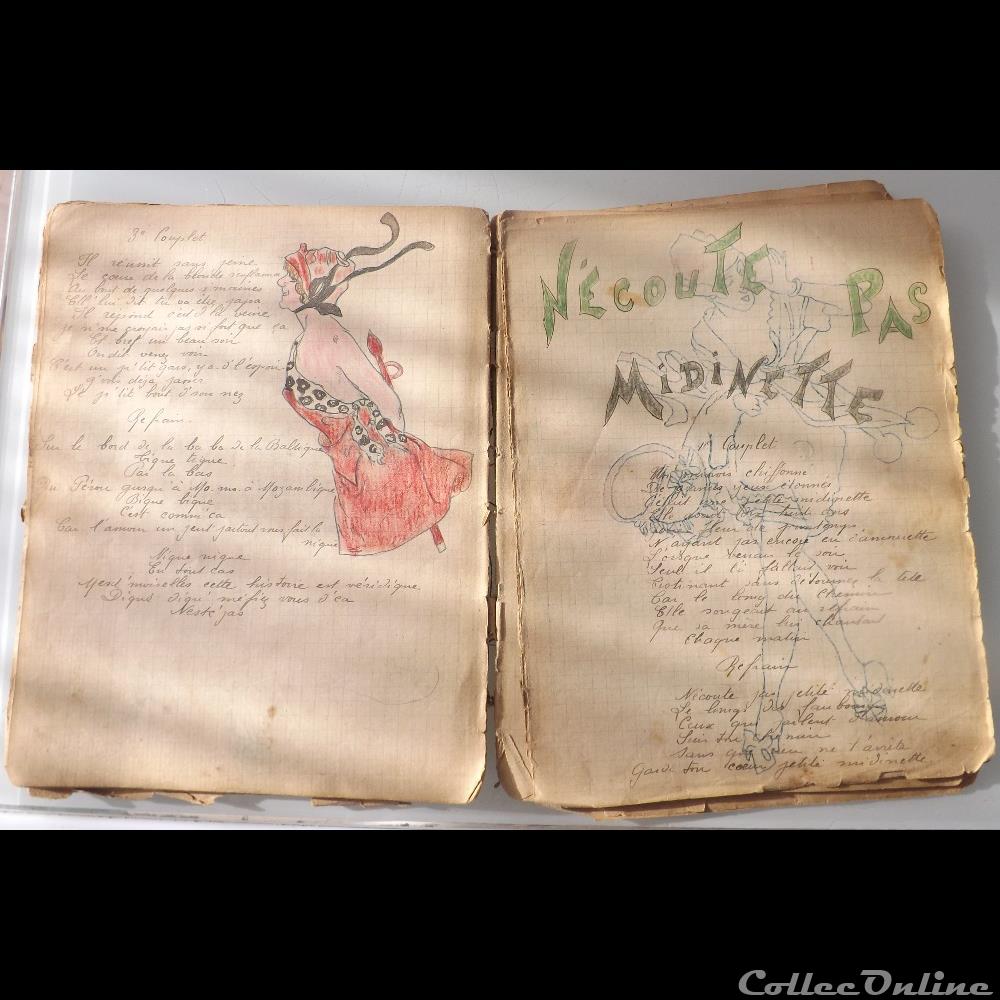 3e Couplet
Il réussit sans peine
Le cœur de la blonde enflamma
Au bout de quelques semaines
Ell' lui dit tu va être papa
Il répond c'est d'la veine
je n'me croyais pas si fort que ça
Et bref un beau soir
On dit venez voir
C'est un p'tit gars, y a d'l'espoir
Le p'tit bout d'son nez
Refrain
Sur le bord de la ba ba de la Baltique
Tique tique
Par la bas
Du Pérou jusqu'à Mo. mo. à Mozambique
Bique bique
C'est comm'ça
Car l'amour un peut partout vous fait la
nique
Nique nique
En tout cas
Mesd'moiselles cette histoire est véridique
Dique dique méfiez vous d'ça
Nesté pas
N'ÉCOUTE PAS
MIDINETTE
1er Couplet
Un minois chifonné
De grands yeux étonnés
C'était une petite midinette
Elle avait
N'ayant pas encore eu d'amourette
Lorsque venait le soir
Seul il la fallait voir
Trotinant sans détourner la tête
Car le long du chemin
Elle songeait au refrain
Que sa mère lui chantait
Chaque matin
Refrain
N'écoute pas petite midinette
Le long des faubourgs
Ceux qui parlent d'amour
Suis ton chemin
Sans que rien ne t'arrête
Garde ton cœur petite midinette
CollecOnline